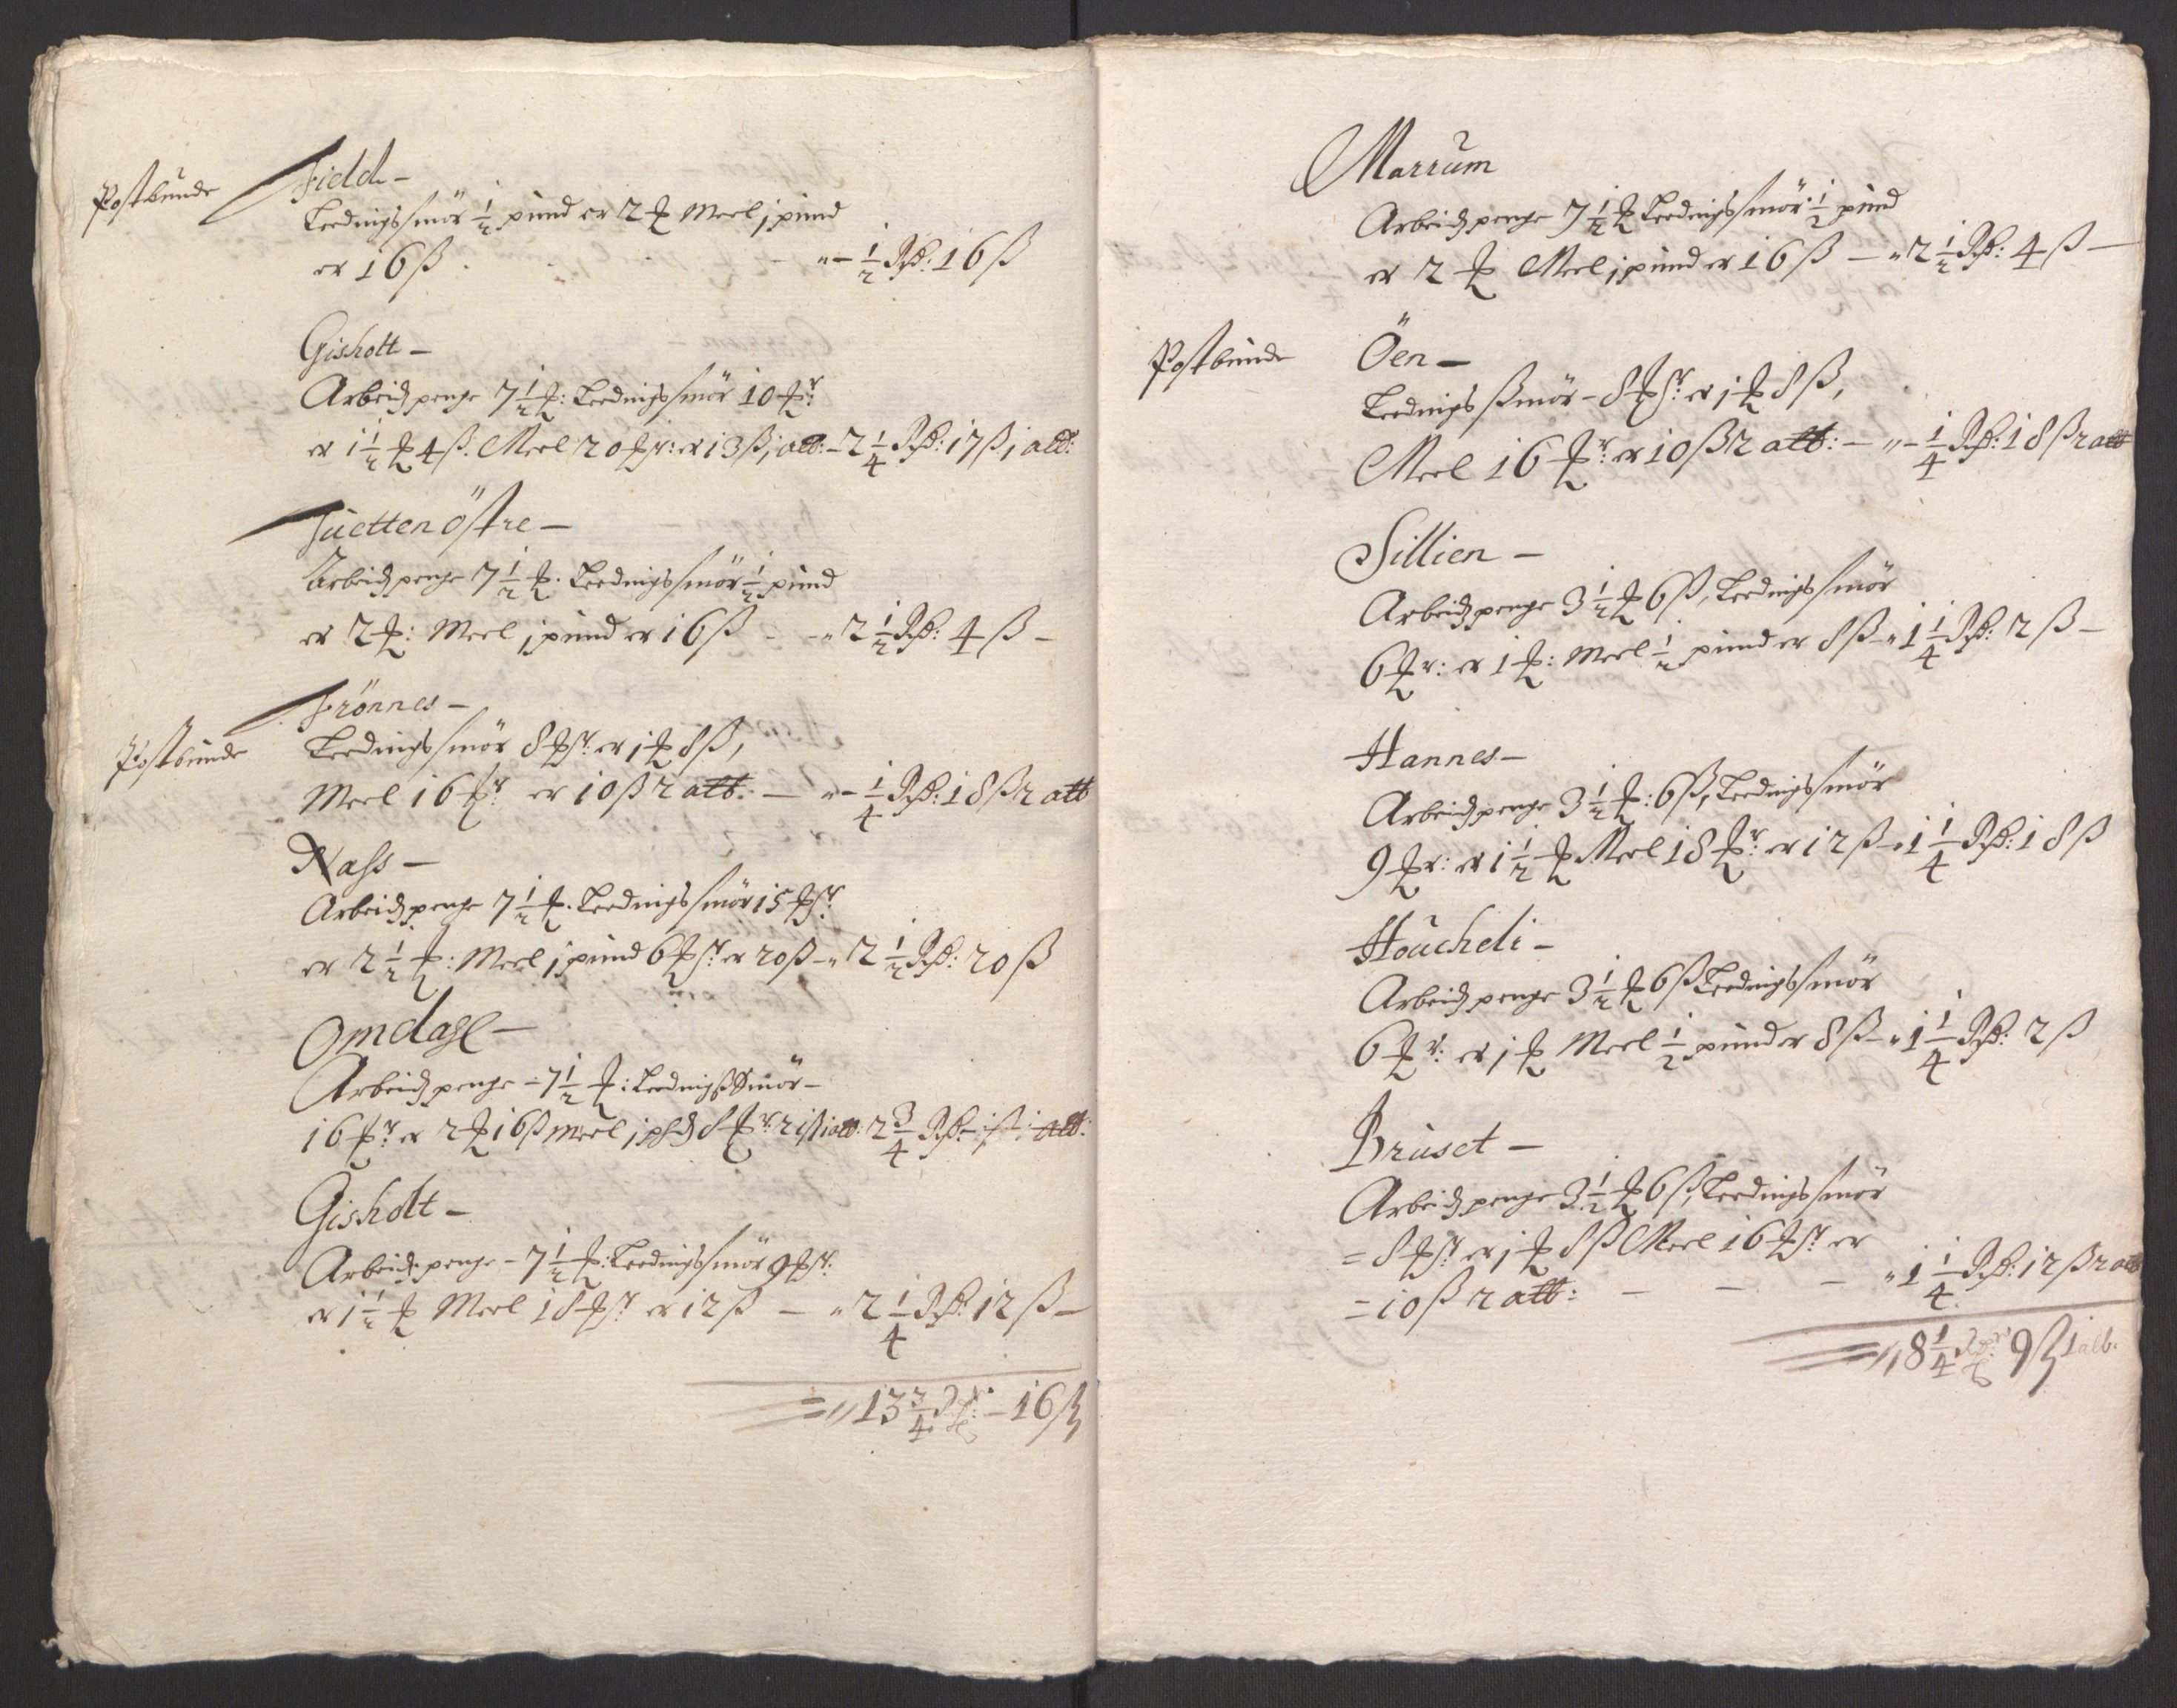 Postbunde
Fieldh –
Leedingssmör ½ pund er 2 ₰ Meel j pund
er 16 ß – „ – ½ Rdr: 16 ß
Gisholt –
Arbeidzpenge 7½ ₰: Leedingssmör 10 ₰r:
er 1½ ₰ 4 ß: Meel 20 ₰r: er 13 ß j alb: – 2¼ Rdr: 17 ß j alb:
Suetten östre –
Arbeidzpenge 7½ ₰. Leedingssmör ½ pund
er 2 ₰: Meel j pund er 16 ß – „ 2½ Rdr: 4 ß –
Postbunde
Frönnes –
Leedingssmör 8 ₰r: er j ₰ 8 ß,
Meel 16 ₰r: er 10 ß 2 alb: – „ – ¼ Rdr: 18 ß 2 alb
Nass –
Arbeidzpenge 7½ ₰. Leedingssmör 15 ₰r:
er 2½ ₰: Meel j pund 6 ₰r: er 20 ß – „ 2½ Rdr: 20 ß
Omdahl –
Arbeidzpenge – 7½ ₰: Leedingssmör –
16 ₰r: er 2 ₰ 16 ß meel j pd 8 ₰r: 21 ß j alb: 2¾ Rdr – 1 ß j alb:
Gisholt –
Arbeidzpenge – 7½ ₰: Leedingssmör 9 ₰r:
er 1½ ₰ Meel 18 ₰r er 12 ß – „ 2¼ Rdr: 12 ß –
= „ 13¾ Rdr: – 16 ß
Marrum
Arbeidzpenge 7½ ₰ Leedingssmör ½ pund
er 2 ₰ Meel j pund er 16 ß – „ 2½ Rdr: 4 ß –
Postbunde
Öen –
Leedingssmör – 8 ₰r: er j ₰ 8 ß,
Meel 16 ₰r: er 10 ß 2 alb: – „ – ¼ Rdr: 18 ß 2 alb
Sillien –
Arbeidzpenge 3½ ₰ 6 ß, Leedingssmör
6 ₰r: er 1 ₰: Meel ½ pund er 8 ß – „ 1¼ Rdr: 2 ß –
Hannes –
Arbeidzpenge 3½ ₰: 6 ß, Leedingssmör
9 ₰r: er 1½ ₰ Meel 18 ₰r: er 12 ß – „ 1¼ Rdr: 18 ß
Houcheli –
Arbeidzpenge 3½ ₰ 6 ß Leedingssmör
6 ₰r: er j ₰ Meel ½ pund er 8 ß – „ 1¼ Rdr: 2 ß
Bruset –
Arbeidzpenge 3½ ₰ 6 ß, Leedingssmör
= 8 ₰r: er j ₰ 8 ß Meel 16 ₰r: er
= 10 ß 2 alb: – – – „ 1¼ Rdr: 12 ß 2 alb
= „ 8¼ Rdr: 9 ß 1 alb.